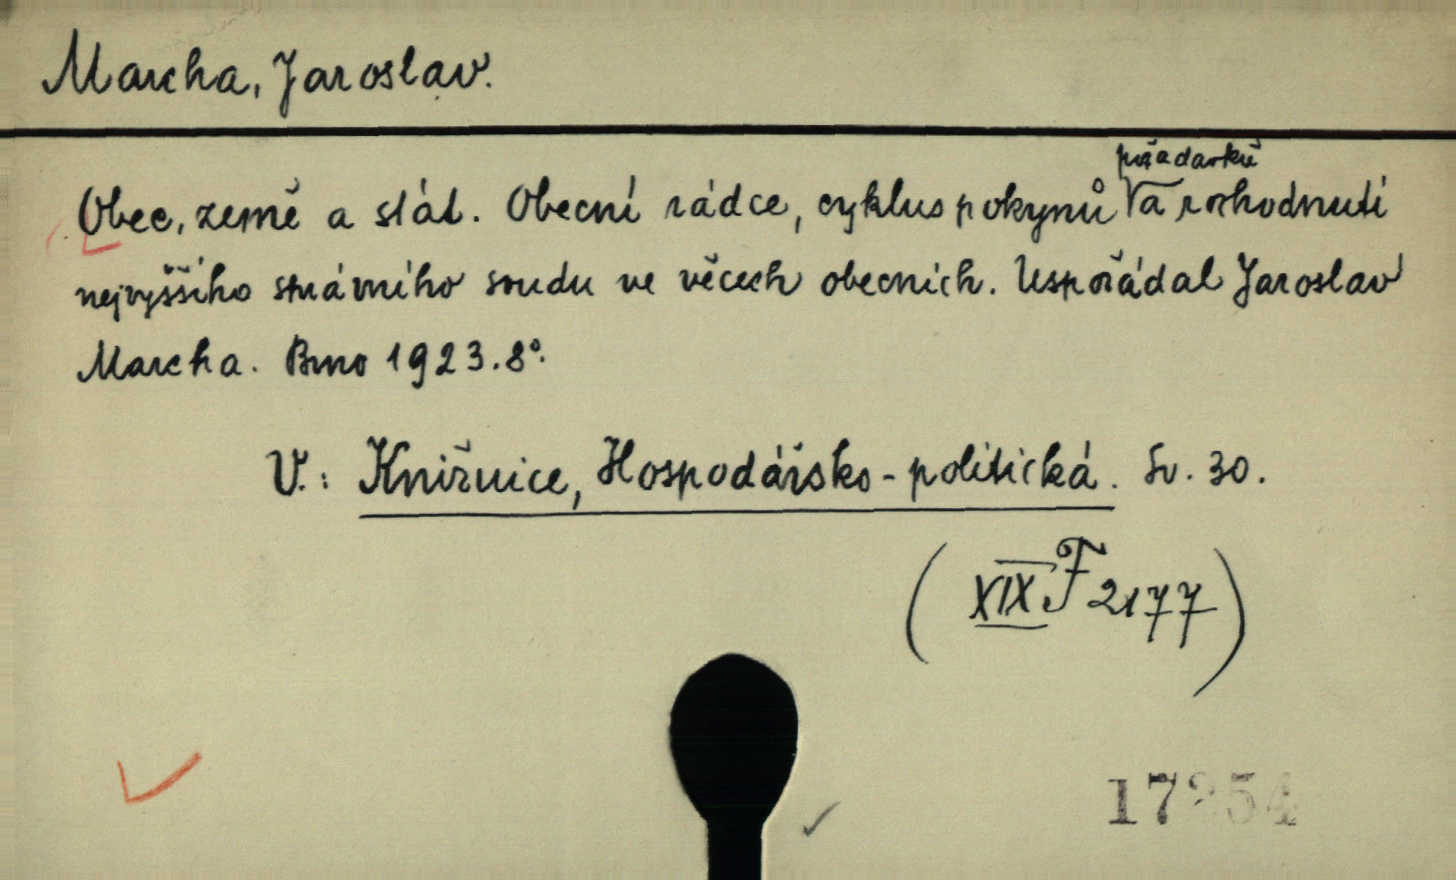 Marcha, Jaroslav.
Obec, země a stát. Obecní rádce, cyklus pokynů a rozhodnutí
nejvyššího správního soudu ve věcech obecních. Uspořádal Jaroslav
Marcha. Brno 1923. 8°.
V.: Knižnice, Hospodářsko-politická. Sv. 30.
(XIX F 2177)